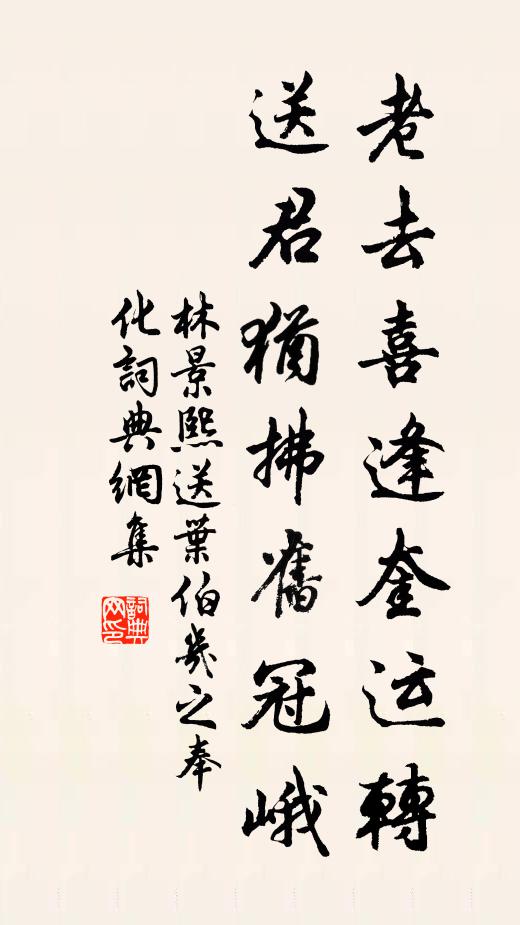 老去喜逢奎运轉
送君猶拂舊冠峨
林景熙送葉伯幾之奉
化詞典網集
詞典
网印